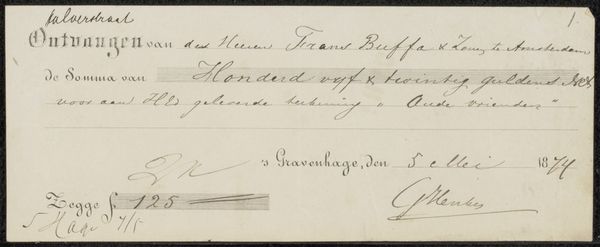 Kalverstraat 1.
Ontvangen van den Heeren Frans Buffa & Zonen te Amsterdam
de Somma van Honderd vyf & twintig guldens
voor aan HEd geleverde teekening „ Oude vrienden "
's Gravenhage, den 5 Mei 1874
Zegge f 125
GHenkes
5 Hage 7/5